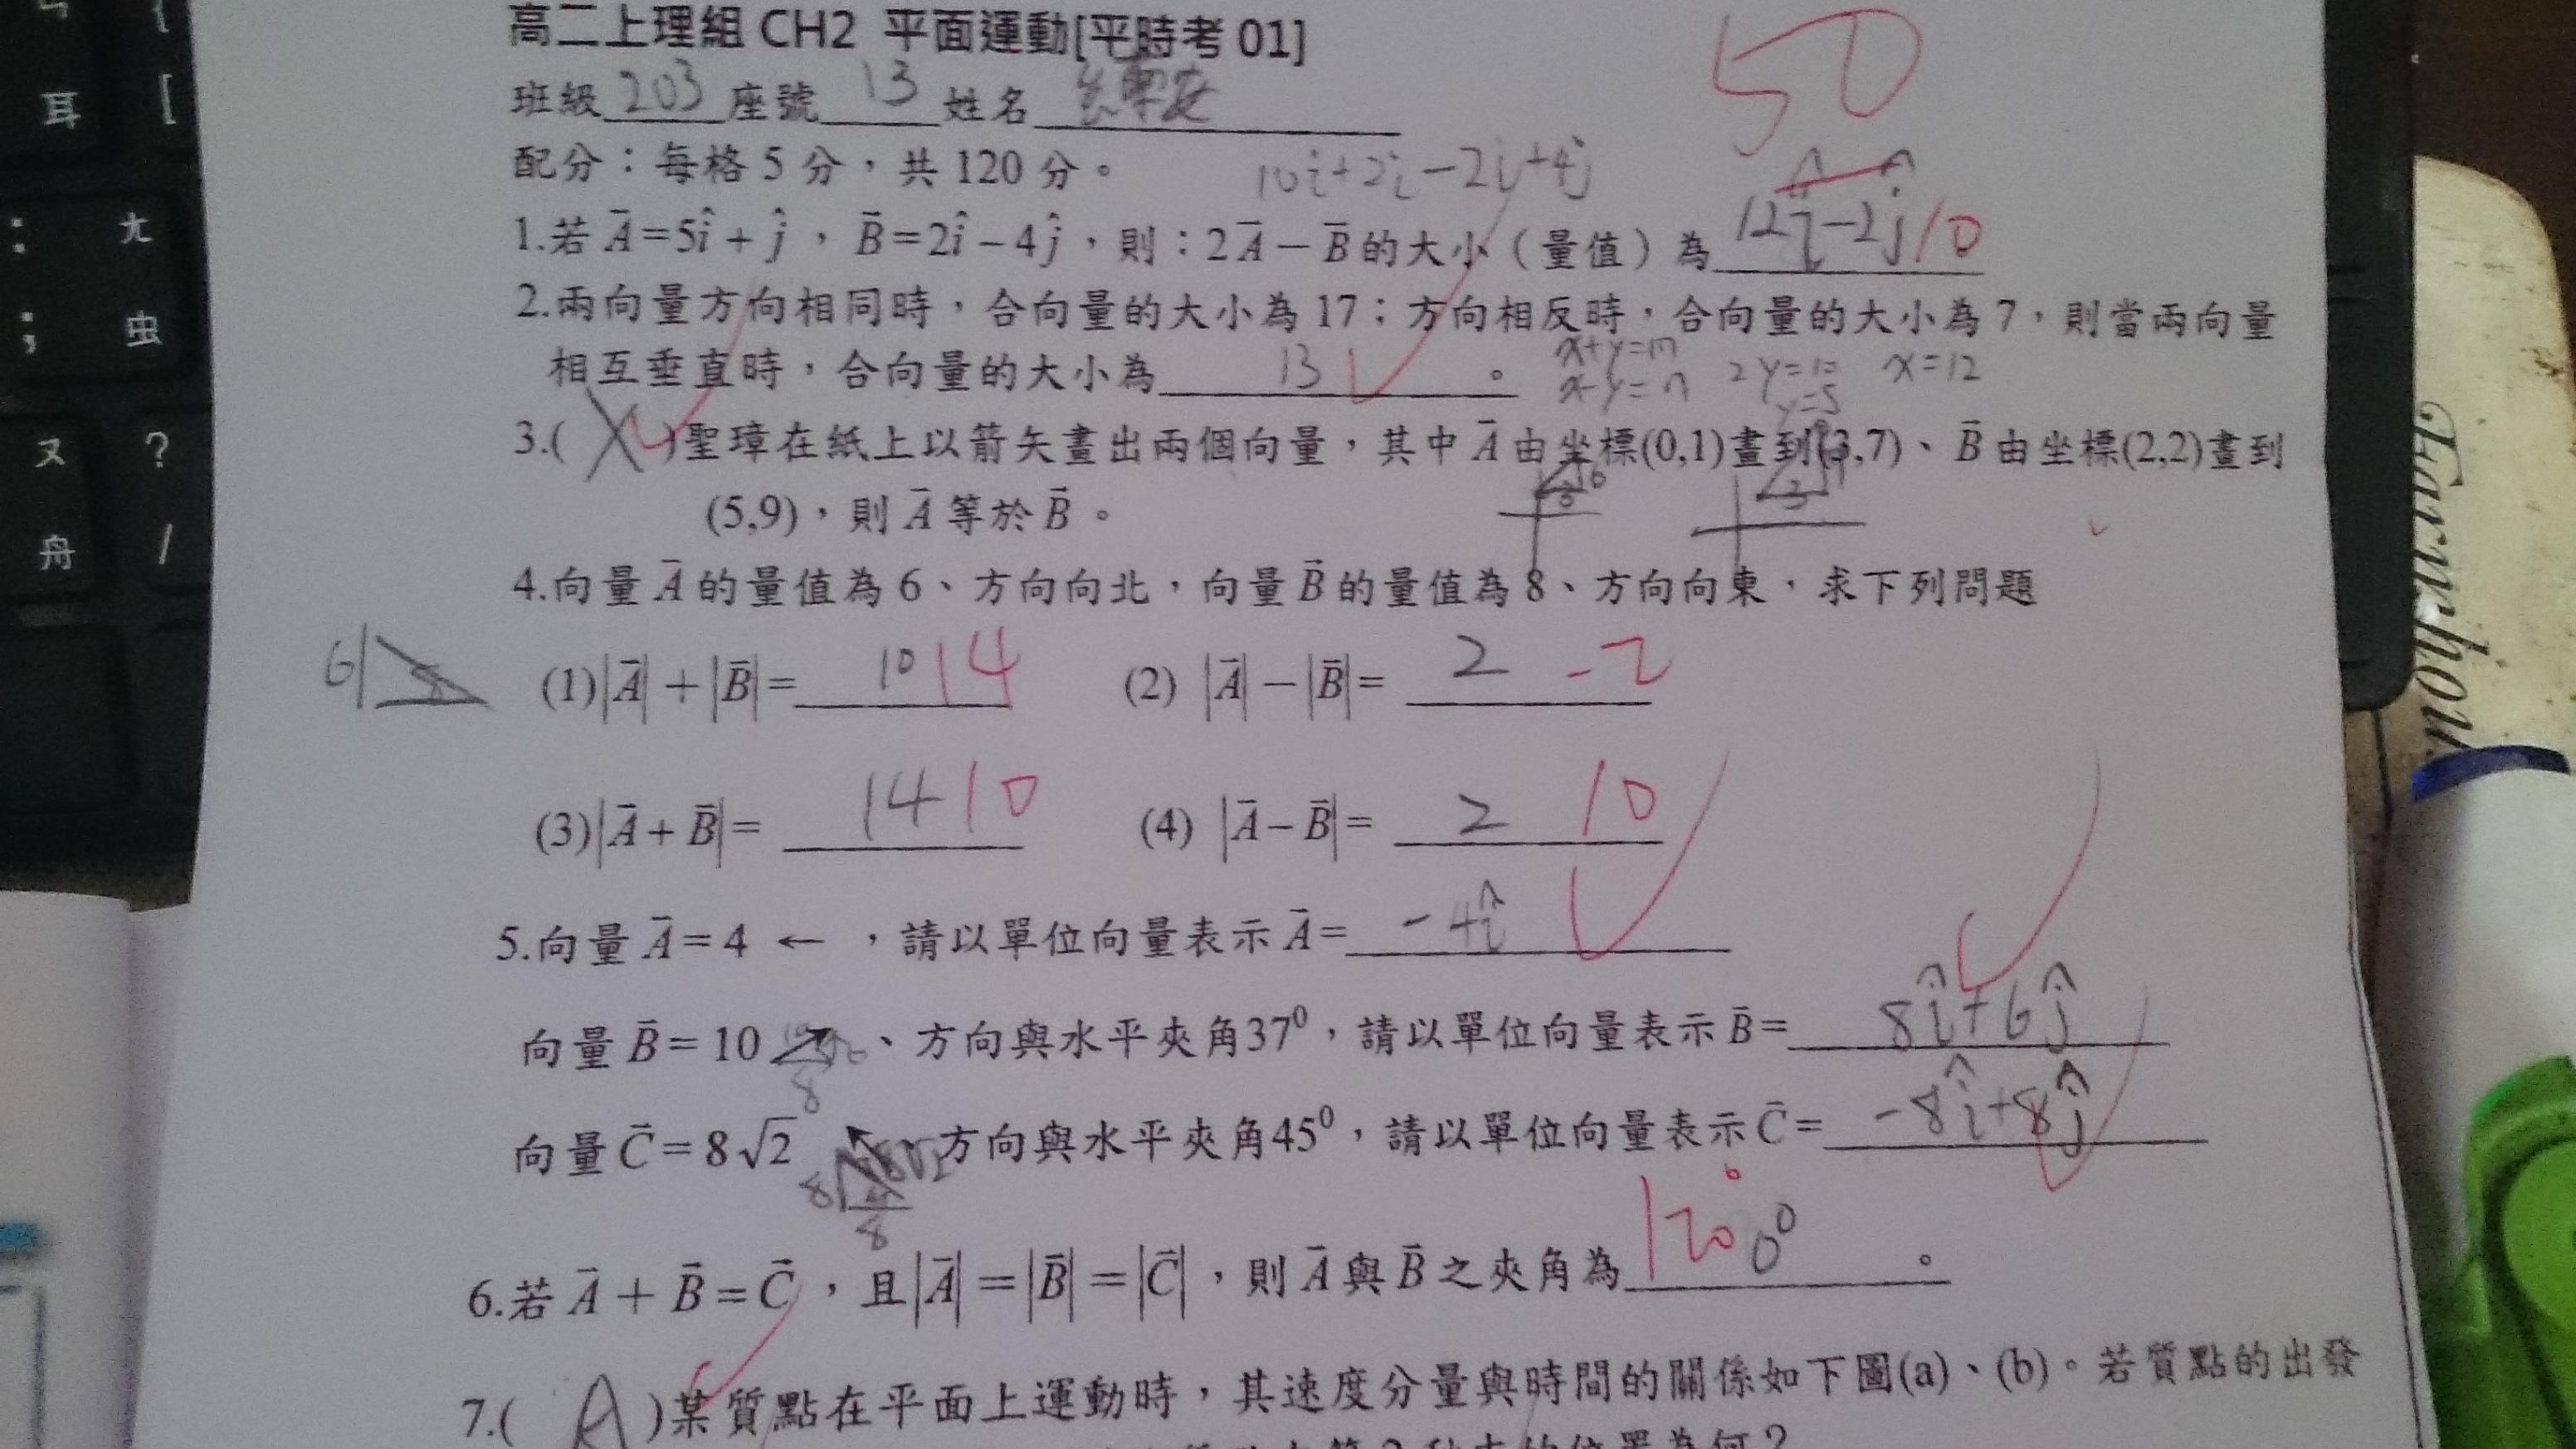 高二上理組 CH2 平面運動[平時考 01]
50
班級 203 座號 13 姓名
配分：每格 5 分，共 120 分。
10i+2i-2i+4j
1.若 A=5î + ĵ ， B=2î − 4ĵ ，則：2A − B 的大小（量值）為 12î-2ĵ 10
2.兩向量方向相同時，合向量的大小為 17；方向相反時，合向量的大小為 7，則當兩向量
相互垂直時，合向量的大小為 13 。
x+y=17
x-y=7
2y=10
y=5
x=12
3.( X )聖璋在紙上以箭矢畫出兩個向量，其中 A 由坐標(0,1)畫到(3,7)、B 由坐標(2,2)畫到
(5,9)，則 A 等於 B 。
4.向量 A 的量值為 6、方向向北，向量 B 的量值為 8、方向向東，求下列問題
6 8
(1)|A| + |B| = 10 14 (2) |A| − |B| = 2 -2
(3)|A + B| = 14 10 (4) |A − B| = 2 10
5.向量 A = 4 ← ，請以單位向量表示 A = -4î
向量 B = 10 、方向與水平夾角37⁰，請以單位向量表示 B = 8î+6ĵ
8
向量 C = 8√2 方向與水平夾角45⁰，請以單位向量表示 C = -8î+8ĵ
8 8√2
8
6.若 A + B = C ，且|A| = |B| = |C| ，則 A 與 B 之夾角為 120° 0⁰ 。
7.( A )某質點在平面上運動時，其速度分量與時間的關係如下圖(a)、(b)。若質點的出發
位置為何？
耳
[
：
ㄤ
;
虫
ㄡ
?
舟
/